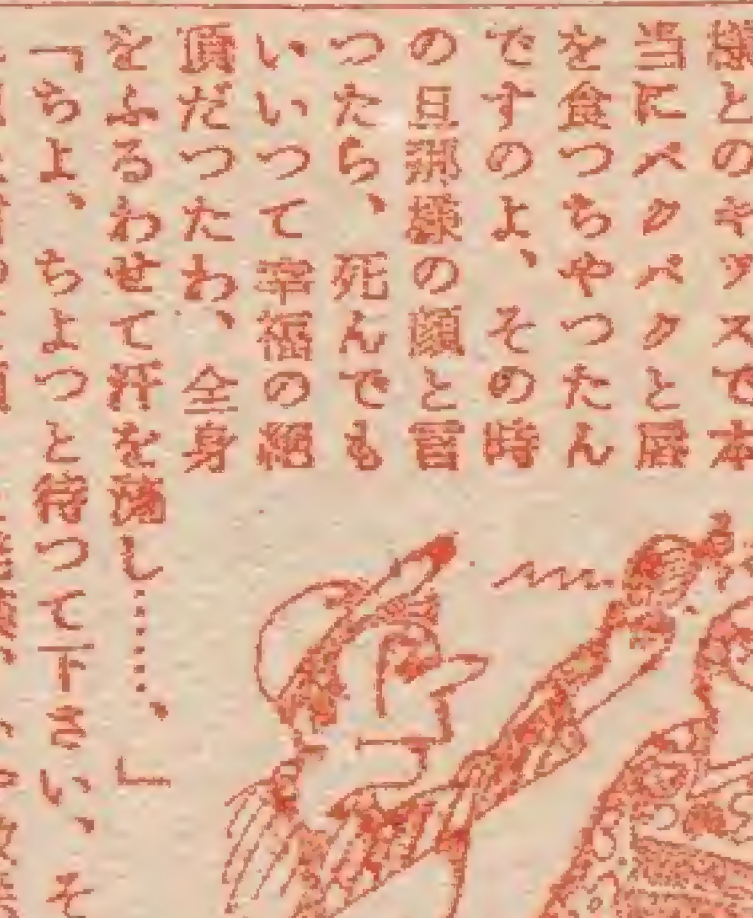 様とのキッスで本
当にパクパクと唇
を食つちやつたん
ですのよ、その時
の旦那様の顔と言
つたら、死んでも
いいつて幸福の絶
頂だつたわ、全身
をふるわせて汗を流し……、」
「ちよ、ちよつと待つて下さい、そ